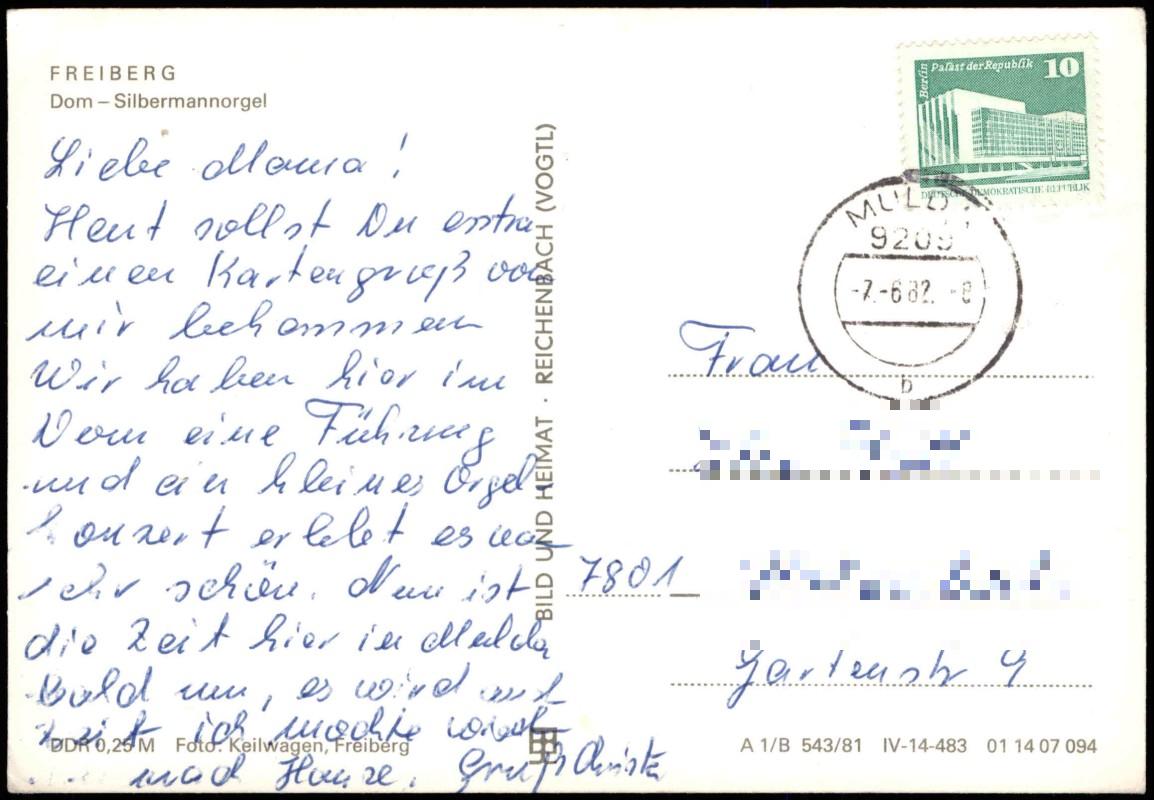 FREIBERG
Dom – Silbermannorgel
Liebe Mama!
Heut sollst Du extra
einen Kartengruß von
mir bekommen
Wir haben hier im
Dom eine Führung
und ein kleines Orgel-
konzert erlebt es war
sehr schön. Nun ist
die Zeit hier in Mulda
bald um, es wird auch
Zeit ich möchte wied
nach Hause. Gruß Christa
DDR 0,25 M Foto: Keilwagen, Freiberg
BILD UND HEIMAT · REICHENBACH (VOGTL)
Berlin
Palast der Republik 10
DEUTSCHE DEMOKRATISCHE REPUBLIK
MULDA
9209
-7.-6 82. -8
b
Frau
7801
Gartenstr 4
A 1/B 543/81 IV-14-483 01 14 07 094